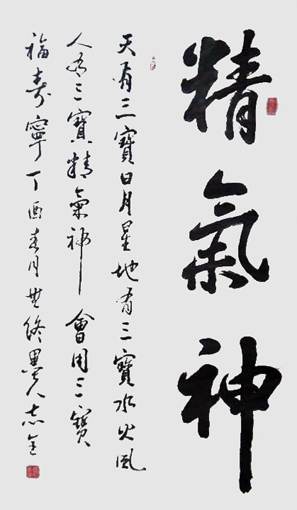 精氣神
天有三寶日月星地有三寶水火風
人有三寶精氣神會用三寶
福壽寧丁酉春月